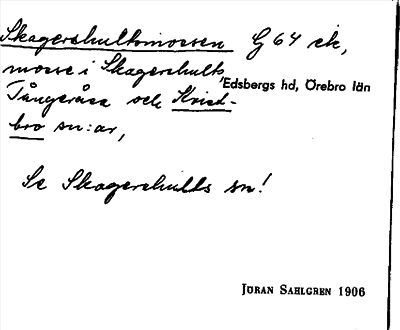 Skagershultsmossen G 64 ek,
mosse i Skagershults,
Edsbergs hd, Örebro län
Tångeråsa och Kvist-
bro sn:ar,
Se Skagershults sn!
JÖRAN SAHLGREN 1906